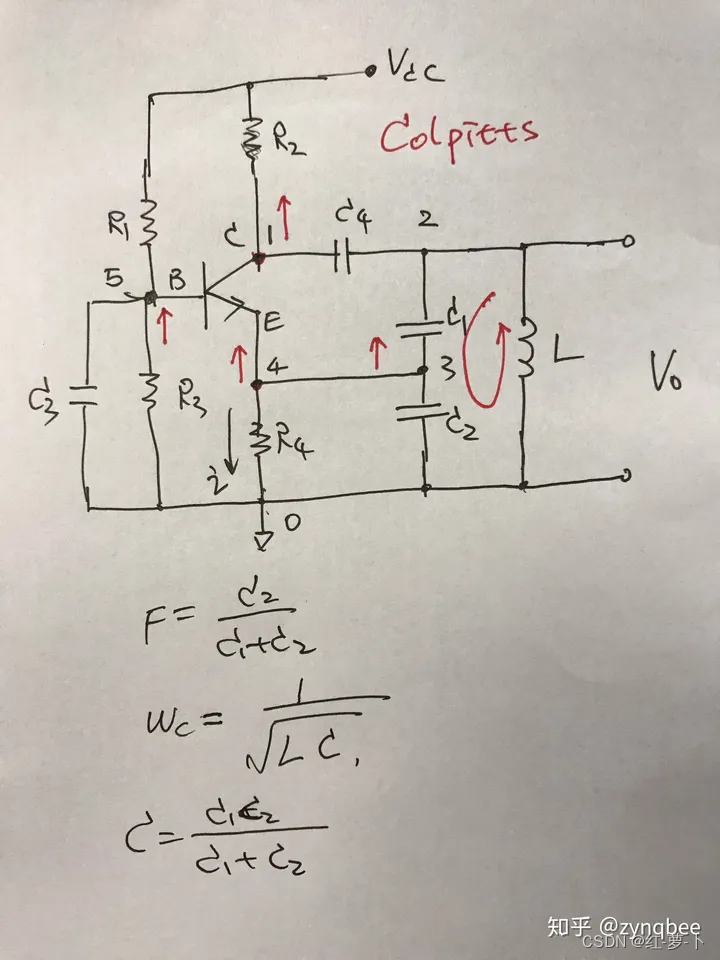 Vcc
Colpitts
R2
R1
C 1
C4
2
5 B
E
C1
4
3
L
Vo
C3
R3
R4
C2
i
0
F = C2 / (C1+C2)
Wc = 1 / √(L C)
C = C1C2 / (C1+C2)
知乎 @zynqbee
CSDN @红-萝-卜